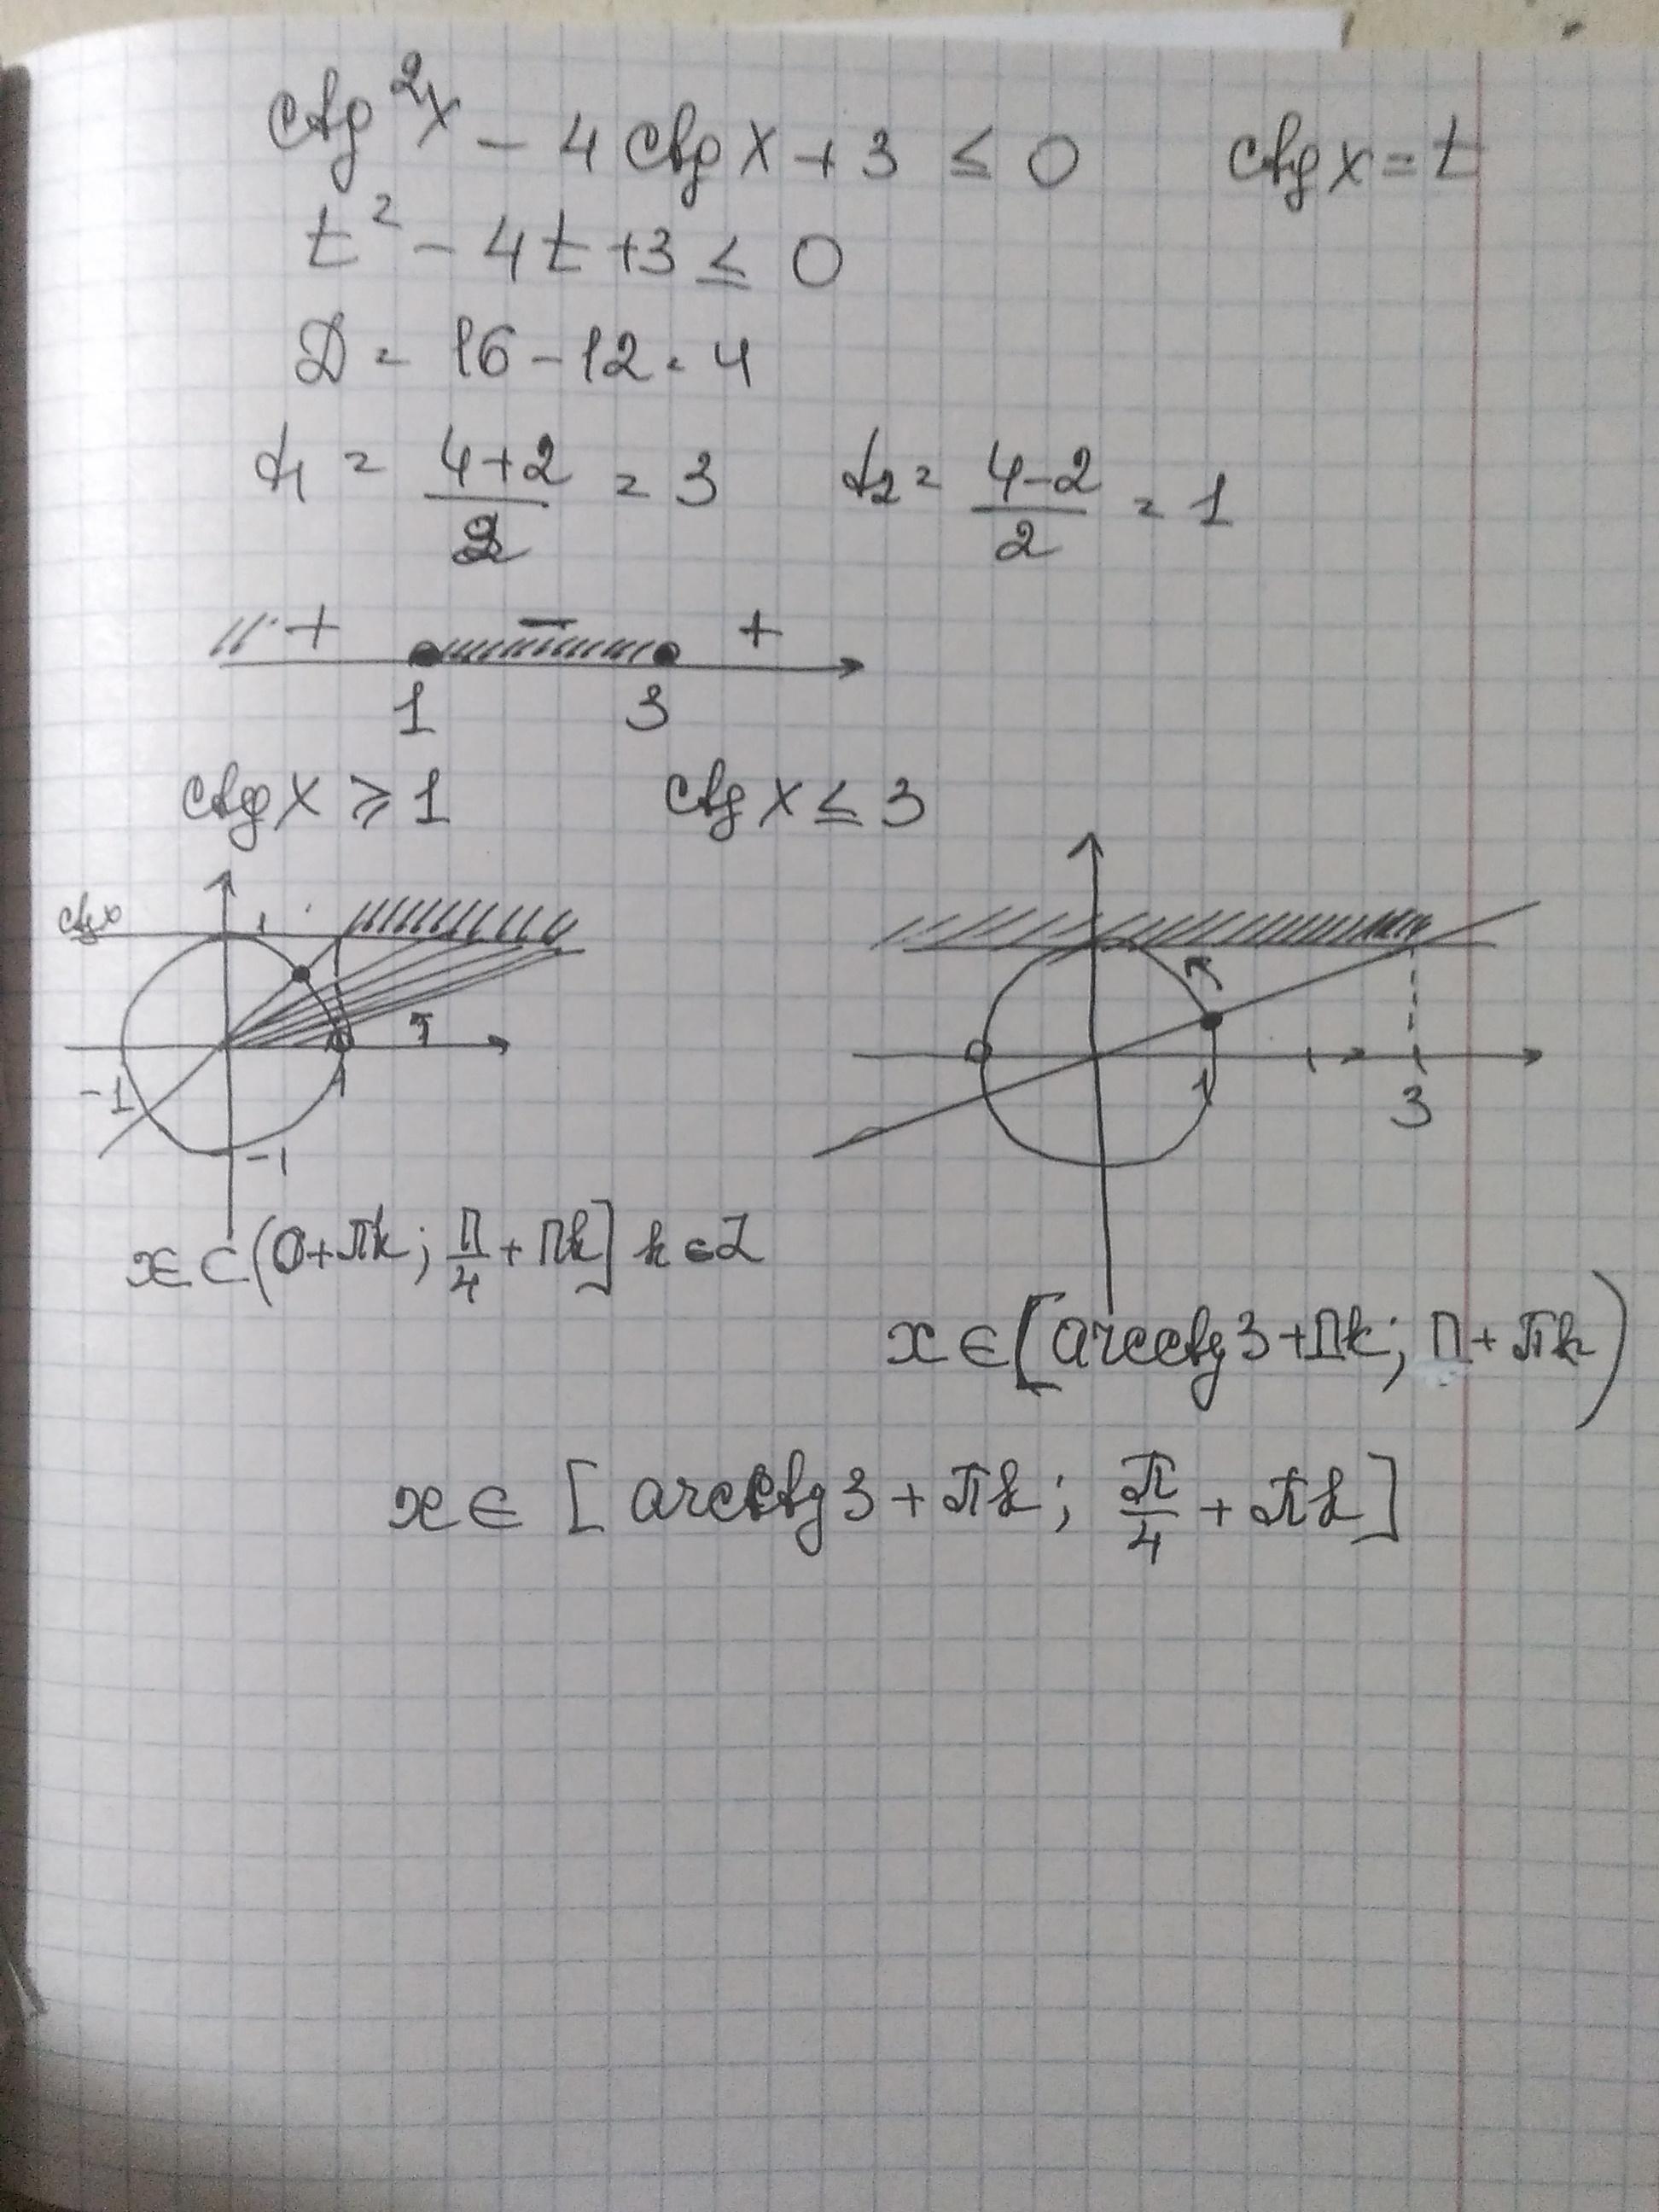 ctg²x - 4 ctg x + 3 ≤ 0 ctg x = t
t² - 4t + 3 ≤ 0
D = 16 - 12 = 4
t₁ = (4+2)/2 = 3 t₂ = (4-2)/2 = 1
+ − +
1 3
ctg x ⩾ 1 ctg x ≤ 3
ctg x 1
-1 1
-1
1 3
x ∈ (0 + πk; π/4 + πk] k ∈ Z
x ∈ [arcctg 3 + πk; π + πk)
x ∈ [arcctg 3 + πk; π/4 + πk]